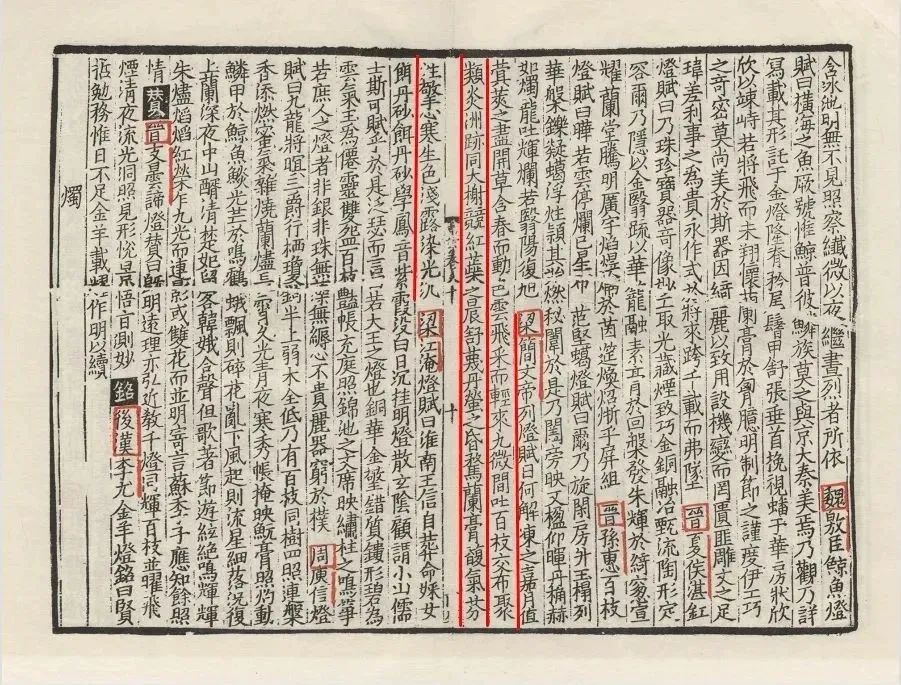 含冰池明無不見照察纖微以夜繼晝烈者所依 魏殷臣鯨魚燈
賦曰橫海之魚厥號惟鯨普彼鱗族莫之與京大秦美焉乃觀乃詳
寫載其形託于金燈隆脊矜尾鬐甲舒張垂首挽視蟠于華房狀欣
欣以竦峙若將飛而未翔懷蘭膏於胷臆明制節之謹度伊工巧
之奇密莫尚美於斯器因綺麗以致用設機變而罔匱匪雕文之足
瑋差利事之為貴永作式於將來跨千載而弗墜 晉夏侯湛缸
燈賦曰乃珠珍寶器奇像妙工取光藏煙致巧金銅融冶甄流陶形定
容爾乃隱以金翳疏以華籠融素膏於回槃發朱輝於綺窓宣
耀蘭堂騰明廣宇焰煜於茵筵煥熠于屏組 晉孫惠百枝
燈賦曰曄若雲停爛已星布 燈賦曰爾乃旋闈房升玉榻列
華槃鑠凝蝎浮炷穎其始燃祕闈於是乃闔旁映文楹仰暉丹桷赫
如燭龍吐輝爛若翳陽復旭 梁簡文帝列燈賦曰何解凍之嘉月值
蓂莢之盡開草含春而動色雲飛采而輕來九微間吐百枝交布聚
類炎洲跡同大樹競紅蘂之晨舒蔑丹螢之昏騖蘭膏馥氣芬
卷八十
十
炷擎心寒生色淺露染光沉 梁江淹燈賦曰淮南王信自華命綵女
餌丹砂餌丹砂學鳳音紫霞沒白日沉挂明燈散玄陰顧謂小山儒
士斯可賦於是泛瑟而言曰若大王之燈也銅華金檠錯質鏤形碧為
雲氣玉為僊靈雙盌百枝豔帳充庭照錦池之文席映繡柱之鳴箏
若庶人之燈者非銀非珠無藻無縟心不貴麗器窮於樸 周庾信燈
賦曰九龍將暝三爵行栖瓊鈎半上弱木全低乃有百枝同樹四照連槃
香添燃蜜氣雜燒蘭燼長宵久光青月夜寒秀帳掩映魭膏照灼動
鱗甲於鯨魚焰光芒於鳴鶴蛾飄則碎花亂下風起則流星細落況復
上蘭深夜中山醑清楚妃留客韓娥合聲低歌著節游絃絕鳴輝輝
朱燼焰焰紅榮乍九光而連彩或雙花而並明寄言蘇季子應知餘照
情 贊 晉支曇諦燈贊曰既明遠理亦弘近教千燈同輝百枝並曜飛
煙清夜流光洞照見形悅景悟旨測妙 銘 後漢李尤金羊燈銘曰賢
哲勉務惟日不足金羊載耀作明以續
燭